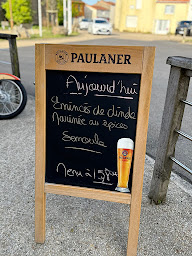 PAULANER
Aujourd'hui
Emincés de dinde
Marinée aux épices
Semoule
Menu à